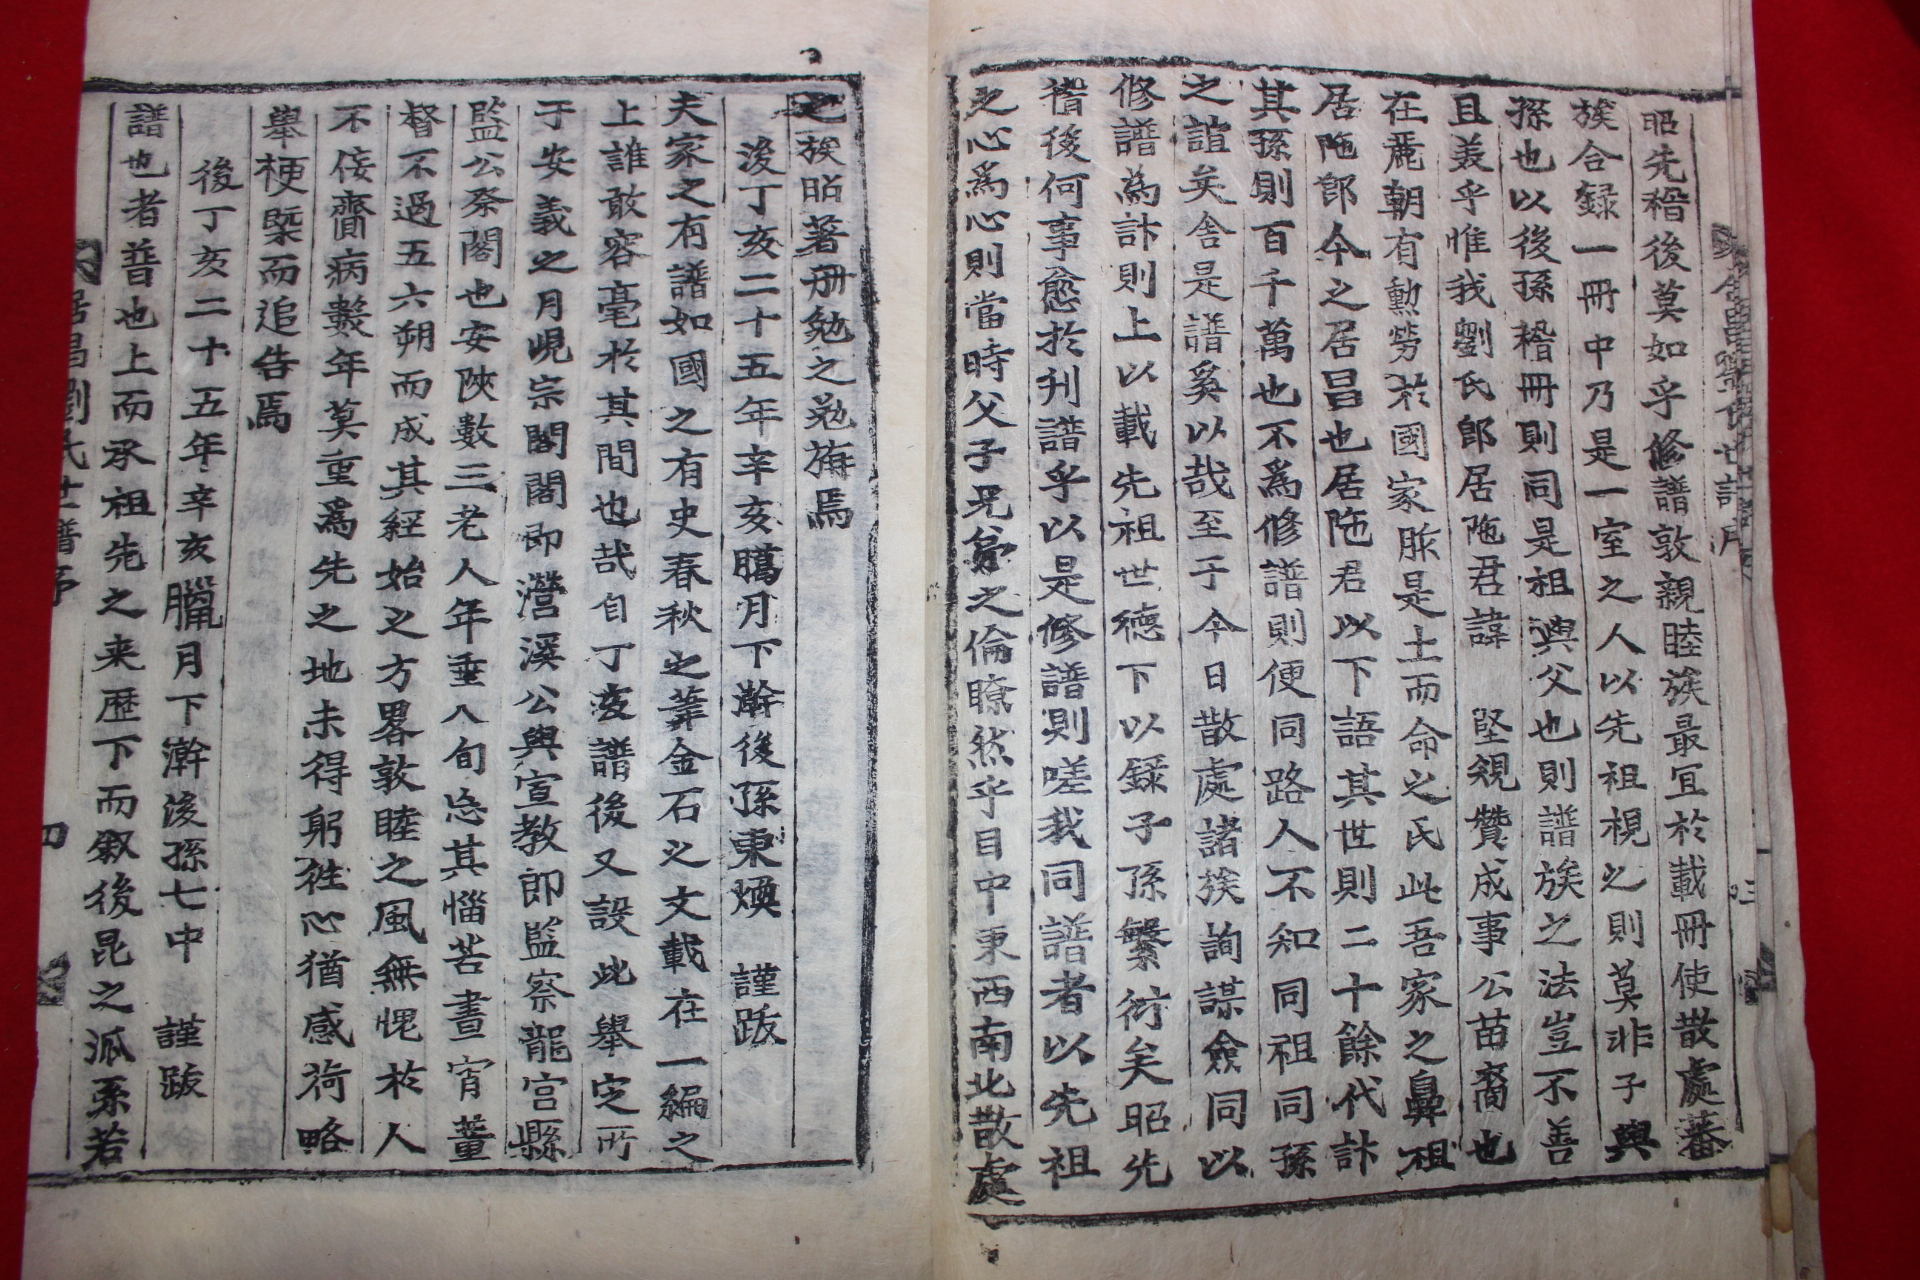 昭先稽後莫如乎修譜敦親睦族最宜於載冊使散處蕃
族合録一冊中乃是一室之人以先祖視之則莫非子與
孫也以後孫稽冊則同是祖與父也則譜族之法豈不善
且義乎惟我劉氏郎居陁君諱 堅規贊成事公苗裔也
在麗朝有勲勞於國家胙是土而命之氏此吾家之鼻祖
居陁郎今之居昌也居陁君以下語其世則二十餘代計
其孫則百千萬也不為修譜則便同路人不知同祖同孫
之誼矣舍是譜奚以哉至于今日散處諸族詢謀僉同以
修譜為計則上以載先祖世徳下以録子孫繁衍矣昭先
稽後何事愈於刋譜乎以是修譜則嗟我同譜者以先祖
之心為心則當時父子兄弟之倫瞭然乎目中東西南北散處
之族昭著册勉之勉旃焉
後丁亥二十五年辛亥臈月下澣後孫東煥 謹跋
夫家之有譜如國之有史春秋之筆金石之文載在一編之
上誰敢容毫於其間也哉自丁亥譜後又設此舉定所
于安義之月峴宗閣閣即濟溪公與宣教郎監察龍宮縣
監公祭閣也安陜數三老人年垂八旬忘其惱苦晝宵董
督不過五六朔而成其經始之方畧敦睦之風無愧於人
不佞齎病數年莫重為先之地未得躬徃心猶感荷略
舉梗槩而追告焉
後丁亥二十五年辛亥臘月下澣後孫七中 謹跋
譜也者普也上而承祖先之来歴下而叙後昆之派系若
居昌劉氏世譜序
四